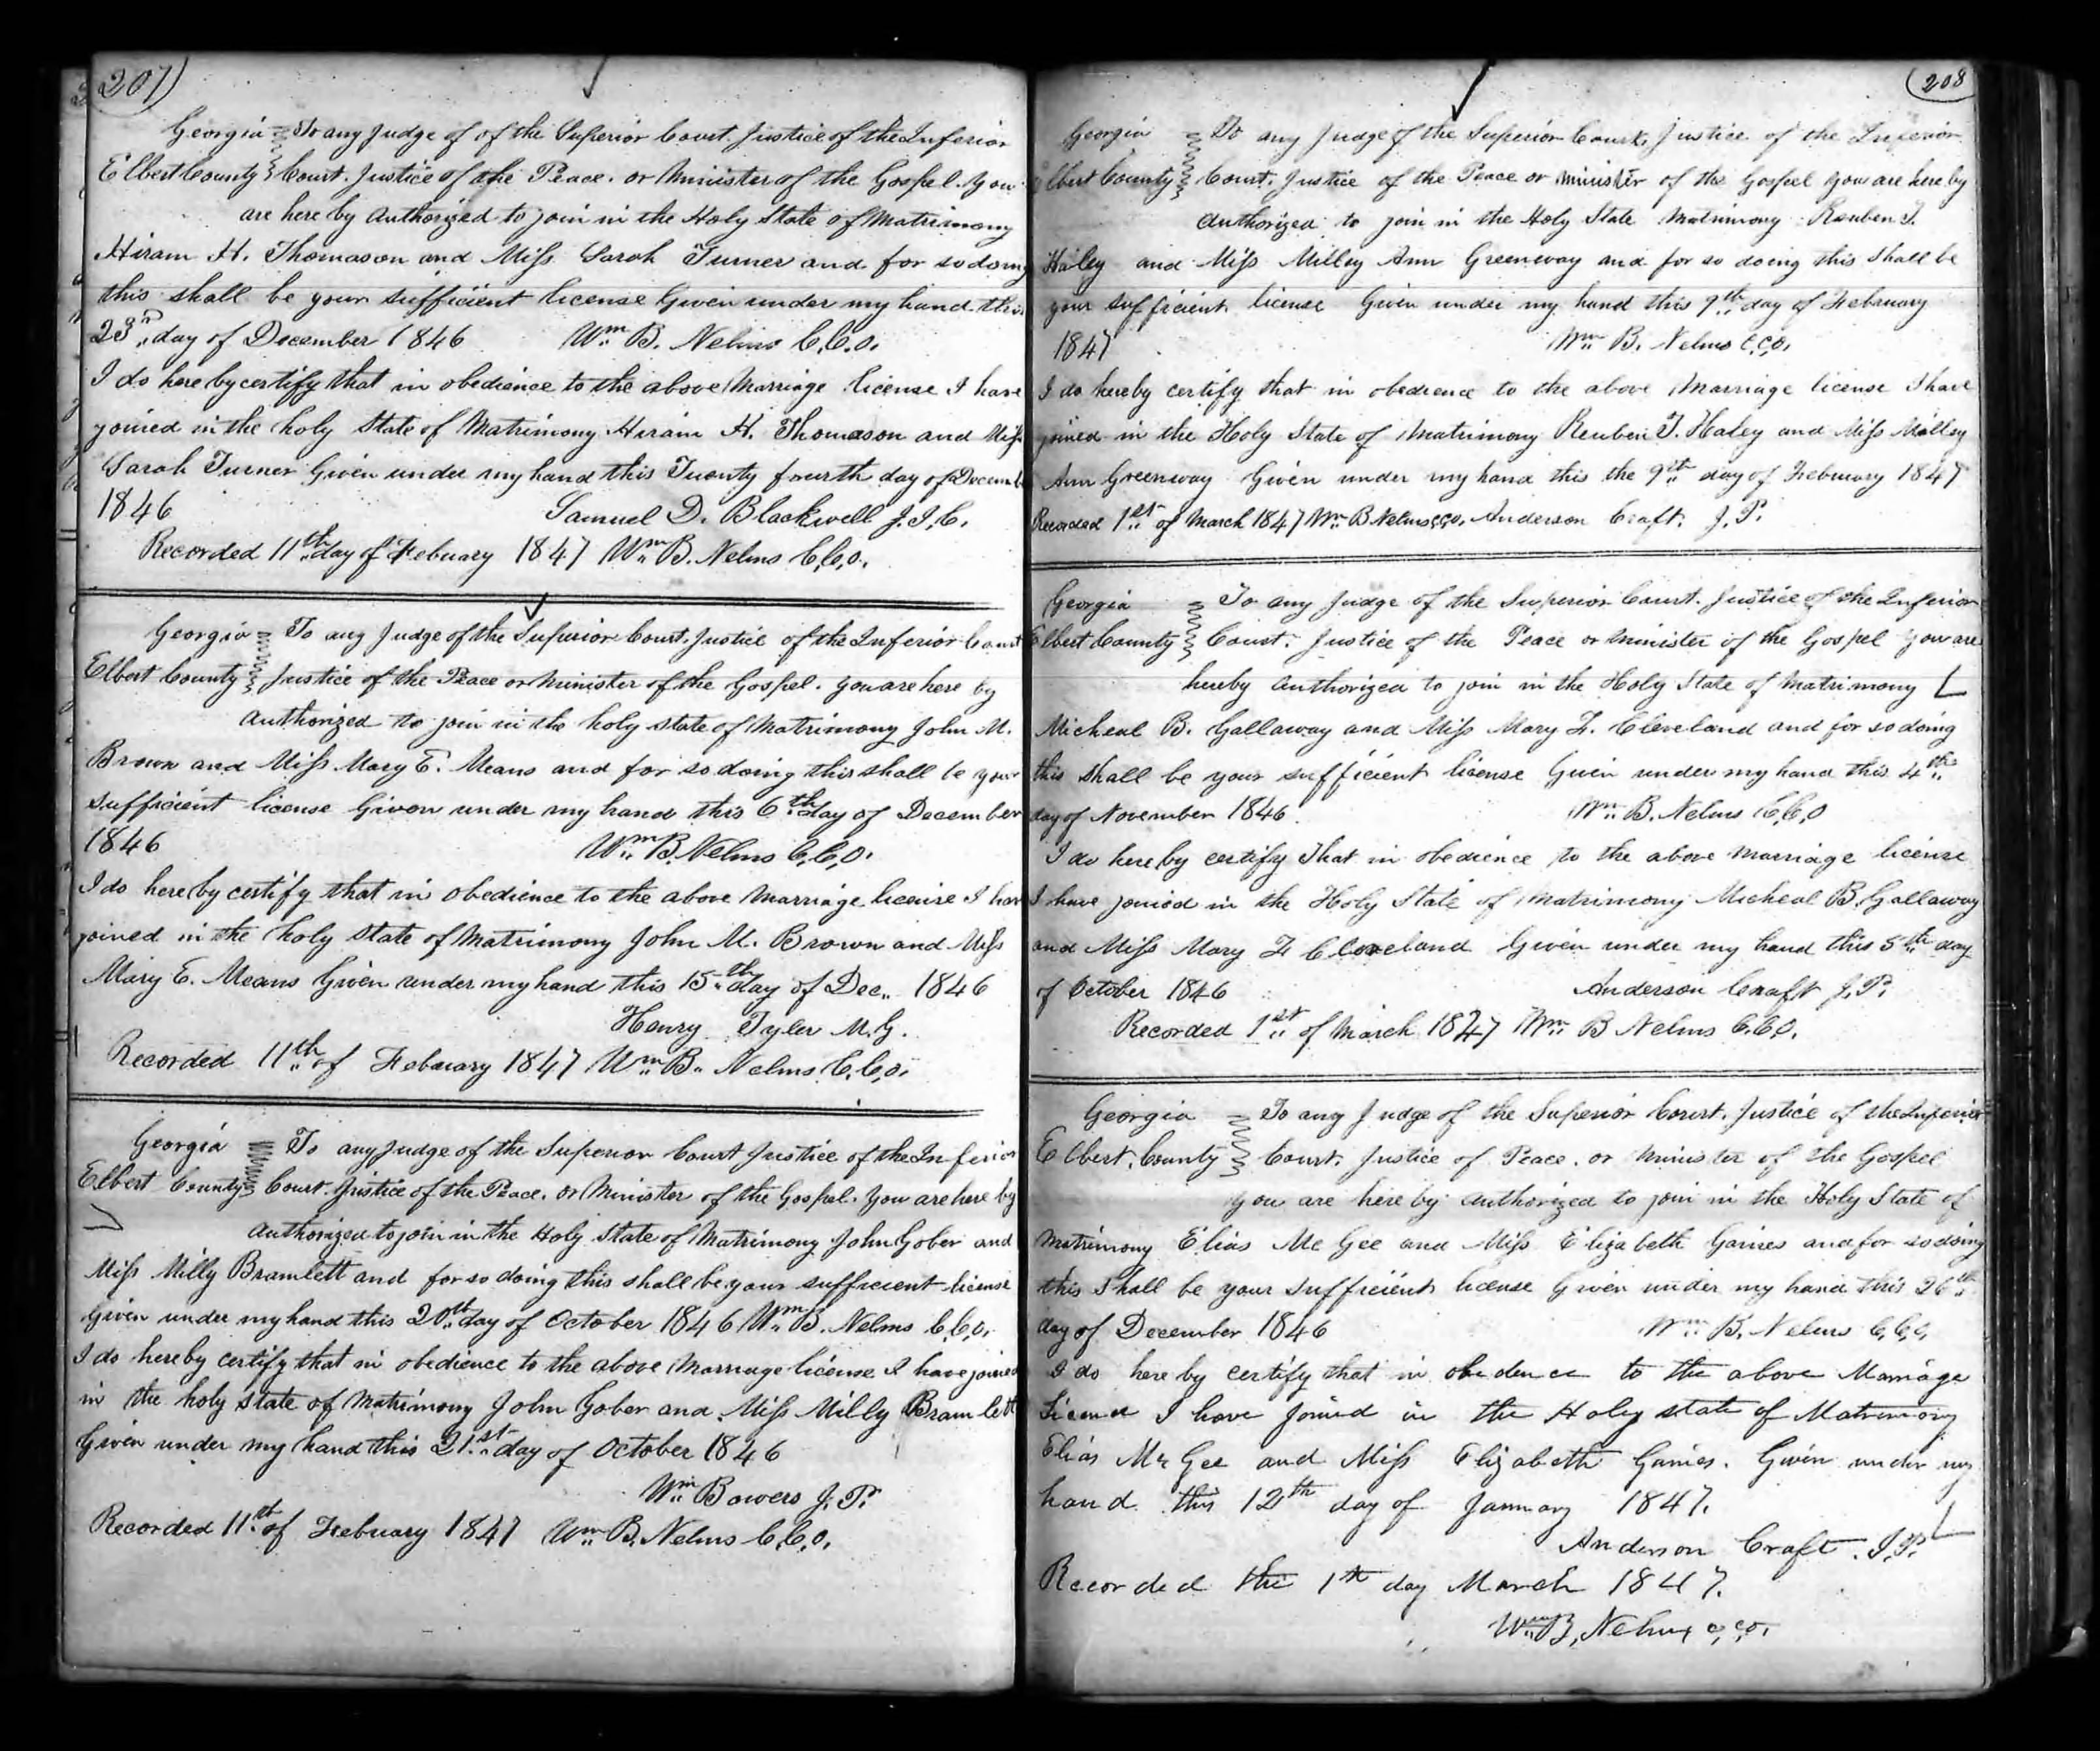 207)
Georgia To any Judge of of the Superior Court Justice of the Inferior
Elbert County Court. Justice of the Peace. or Minister of the Gospel. You
are here by Authorized to join in the Holy State of Matrimony
Hiram H. Thomason and Miss Sarah Turner and for so doing
this shall be your sufficient license Given under my hand this
23rd day of December 1846 Wm B. Nelms C.C.O.
I do here by certify that in obedience to the above Marriage license I have
joined in the holy State of Matrimony Hiram H. Thomason and Miss
Sarah Turner Given under my hand this Twenty fourth day of Decemb
1846 Samuel D. Blackwell J.I.C.
Recorded 11th day of Febuary 1847 Wm B. Nelms C.C.O.
Georgia To any Judge of the Superior Court, Justice of the Inferior Court
Elbert County Justice of the Peace or Minister of the Gospel. you are here by
Authorized to join in the holy state of Matrimony John M.
Brown and Miss Mary E. Means and for so doing this shall be your
sufficient license Given under my hand this 6th day of December
1846 Wm B. Nelms C.C.O.
I do here by certify that in obedience to the above Marriage license I have
joined in the holy State of Matrimony John M. Brown and Miss
Mary E. Means Given under my hand this 15th day of Dec. 1846
Henry Tyler M.G.
Recorded 11th of Febuary 1847 Wm B. Nelms C.C.O.
Georgia To any Judge of the Superior Court Justice of the Inferior
Elbert County Court. Justice of the Peace. or Minister of the Gospel. You are here by
Authorized to join in the Holy State of Matrimony John Gober and
Miss Milly Bramlett and for so doing this shall be your sufficient license
Given under my hand this 20th day of October 1846 Wm B. Nelms C.C.O.
I do hereby certify that in obedience to the above Marriage license I have joined
in the holy State of Matrimony John Gober and Miss Milly Bramlett
Given under my hand this 21st day of October 1846
Wm Bowers J.P.
Recorded 11th of Febuary 1847 Wm B. Nelms C.C.O.
208
Georgia To any Judge of the Superior Court, Justice of the Inferior
Elbert County Court. Justice of the Peace or Minister of the Gospel you are here by
Authorized to join in the Holy State Matrimony Reuben T.
Haley and Miss Milley Ann Greenway and for so doing this Shall be
your sufficient license Given under my hand this 9th day of February
1847 Wm B. Nelms C.C.O.
I do hereby certify that in obedience to the above Marriage license I have
joined in the Holy State of Matrimony Reuben T. Haley and Miss Milley
Ann Greenway Given under my hand this the 9th day of February 1847
Recorded 1st of March 1847 Wm B Nelms C.C.O. Anderson Craft. J.P.
Georgia To any Judge of the Superior Court. Justice of the Inferior
Elbert County Court. Justice of the Peace or Minister of the Gospel you are
hereby Authorized to join in the Holy State of Matrimony
Micheal B. Gallaway and Miss Mary F. Cleveland and for so doing
this shall be your sufficient license Given under my hand this 4th
day of November 1846 Wm B. Nelms C.C.O
I do here by certify that in obedience to the above Marriage license
I have joined in the Holy State of Matrimony Micheal B. Gallaway
and Miss Mary F Cleveland Given under my hand this 5th day
of October 1846 Anderson Craft J.P.
Recorded 1st of March 1847 Wm B Nelms C.C.O.
Georgia To any Judge of the Superior Court. Justice of the Inferior
Elbert County Court. Justice of Peace. or Minister of the Gospel
you are here by Authorized to join in the Holy State of
Matrimony Elias Mc Gee and Miss Elizabeth Gaines and for so doing
this Shall be your sufficient license Given under my hand this 26th
day of December 1846 Wm B. Nelms C.C.O.
I do here by certify that in obedence to the above Marriage
Licence I have joined in the Holy state of Matrimony
Elias McGee and Miss Elizabeth Gaines. Given under my
hand this 12th day of January 1847.
Anderson Craft. J.P.
Recorded the 1st day March 1847.
Wm B. Nelms c.c.o.